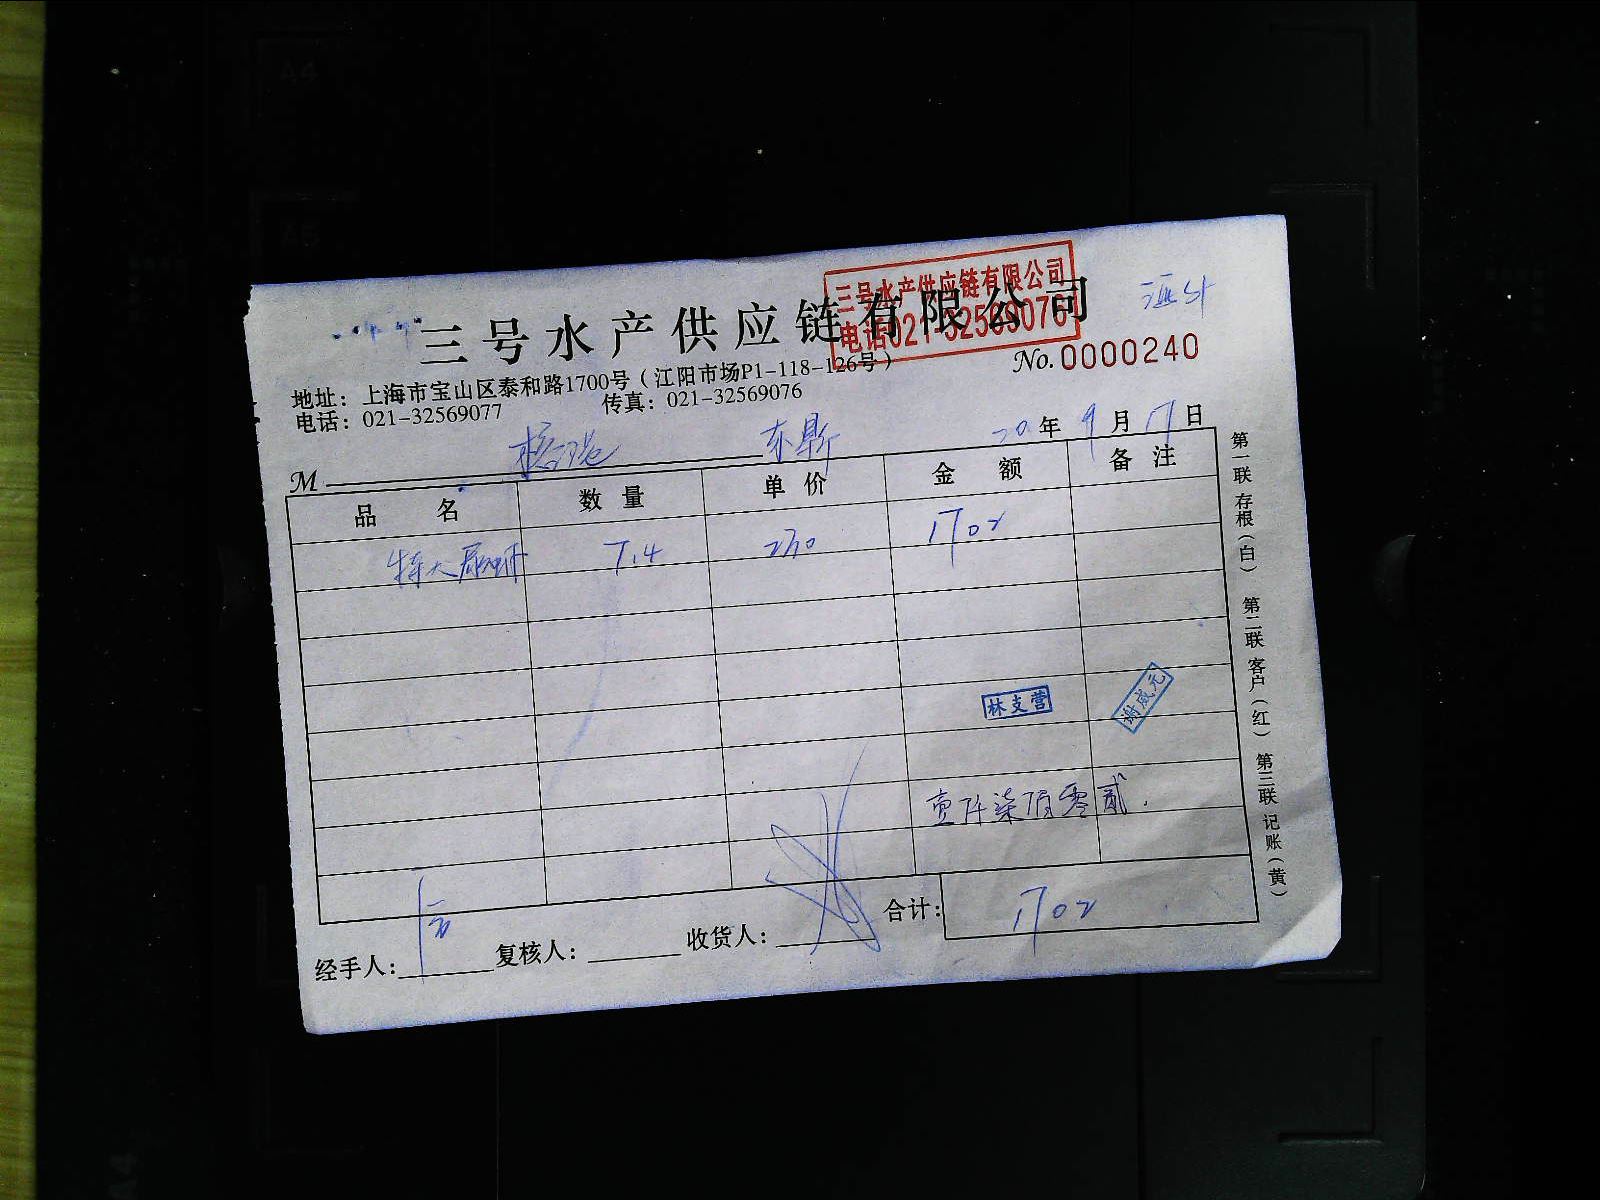 三号水产供应链有限公司
三号水产供应链有限公司
电话021-32569076
No.0000240
地址：上海市宝山区泰和路1700号（江阳市场P1-118-126号）
电话：021-32569077 传真：021-32569076
M 东鼎 20 年 9 月 17 日
品 名 数 量 单 价 金 额 备 注
特大 7.4 230 1702
林支营
谢威元
壹仟柒佰零贰.
经手人： 复核人： 收货人： 合计： 1702
第一联 存根（白） 第二联 客户（红） 第三联 记账（黄）
A4
A5
A4